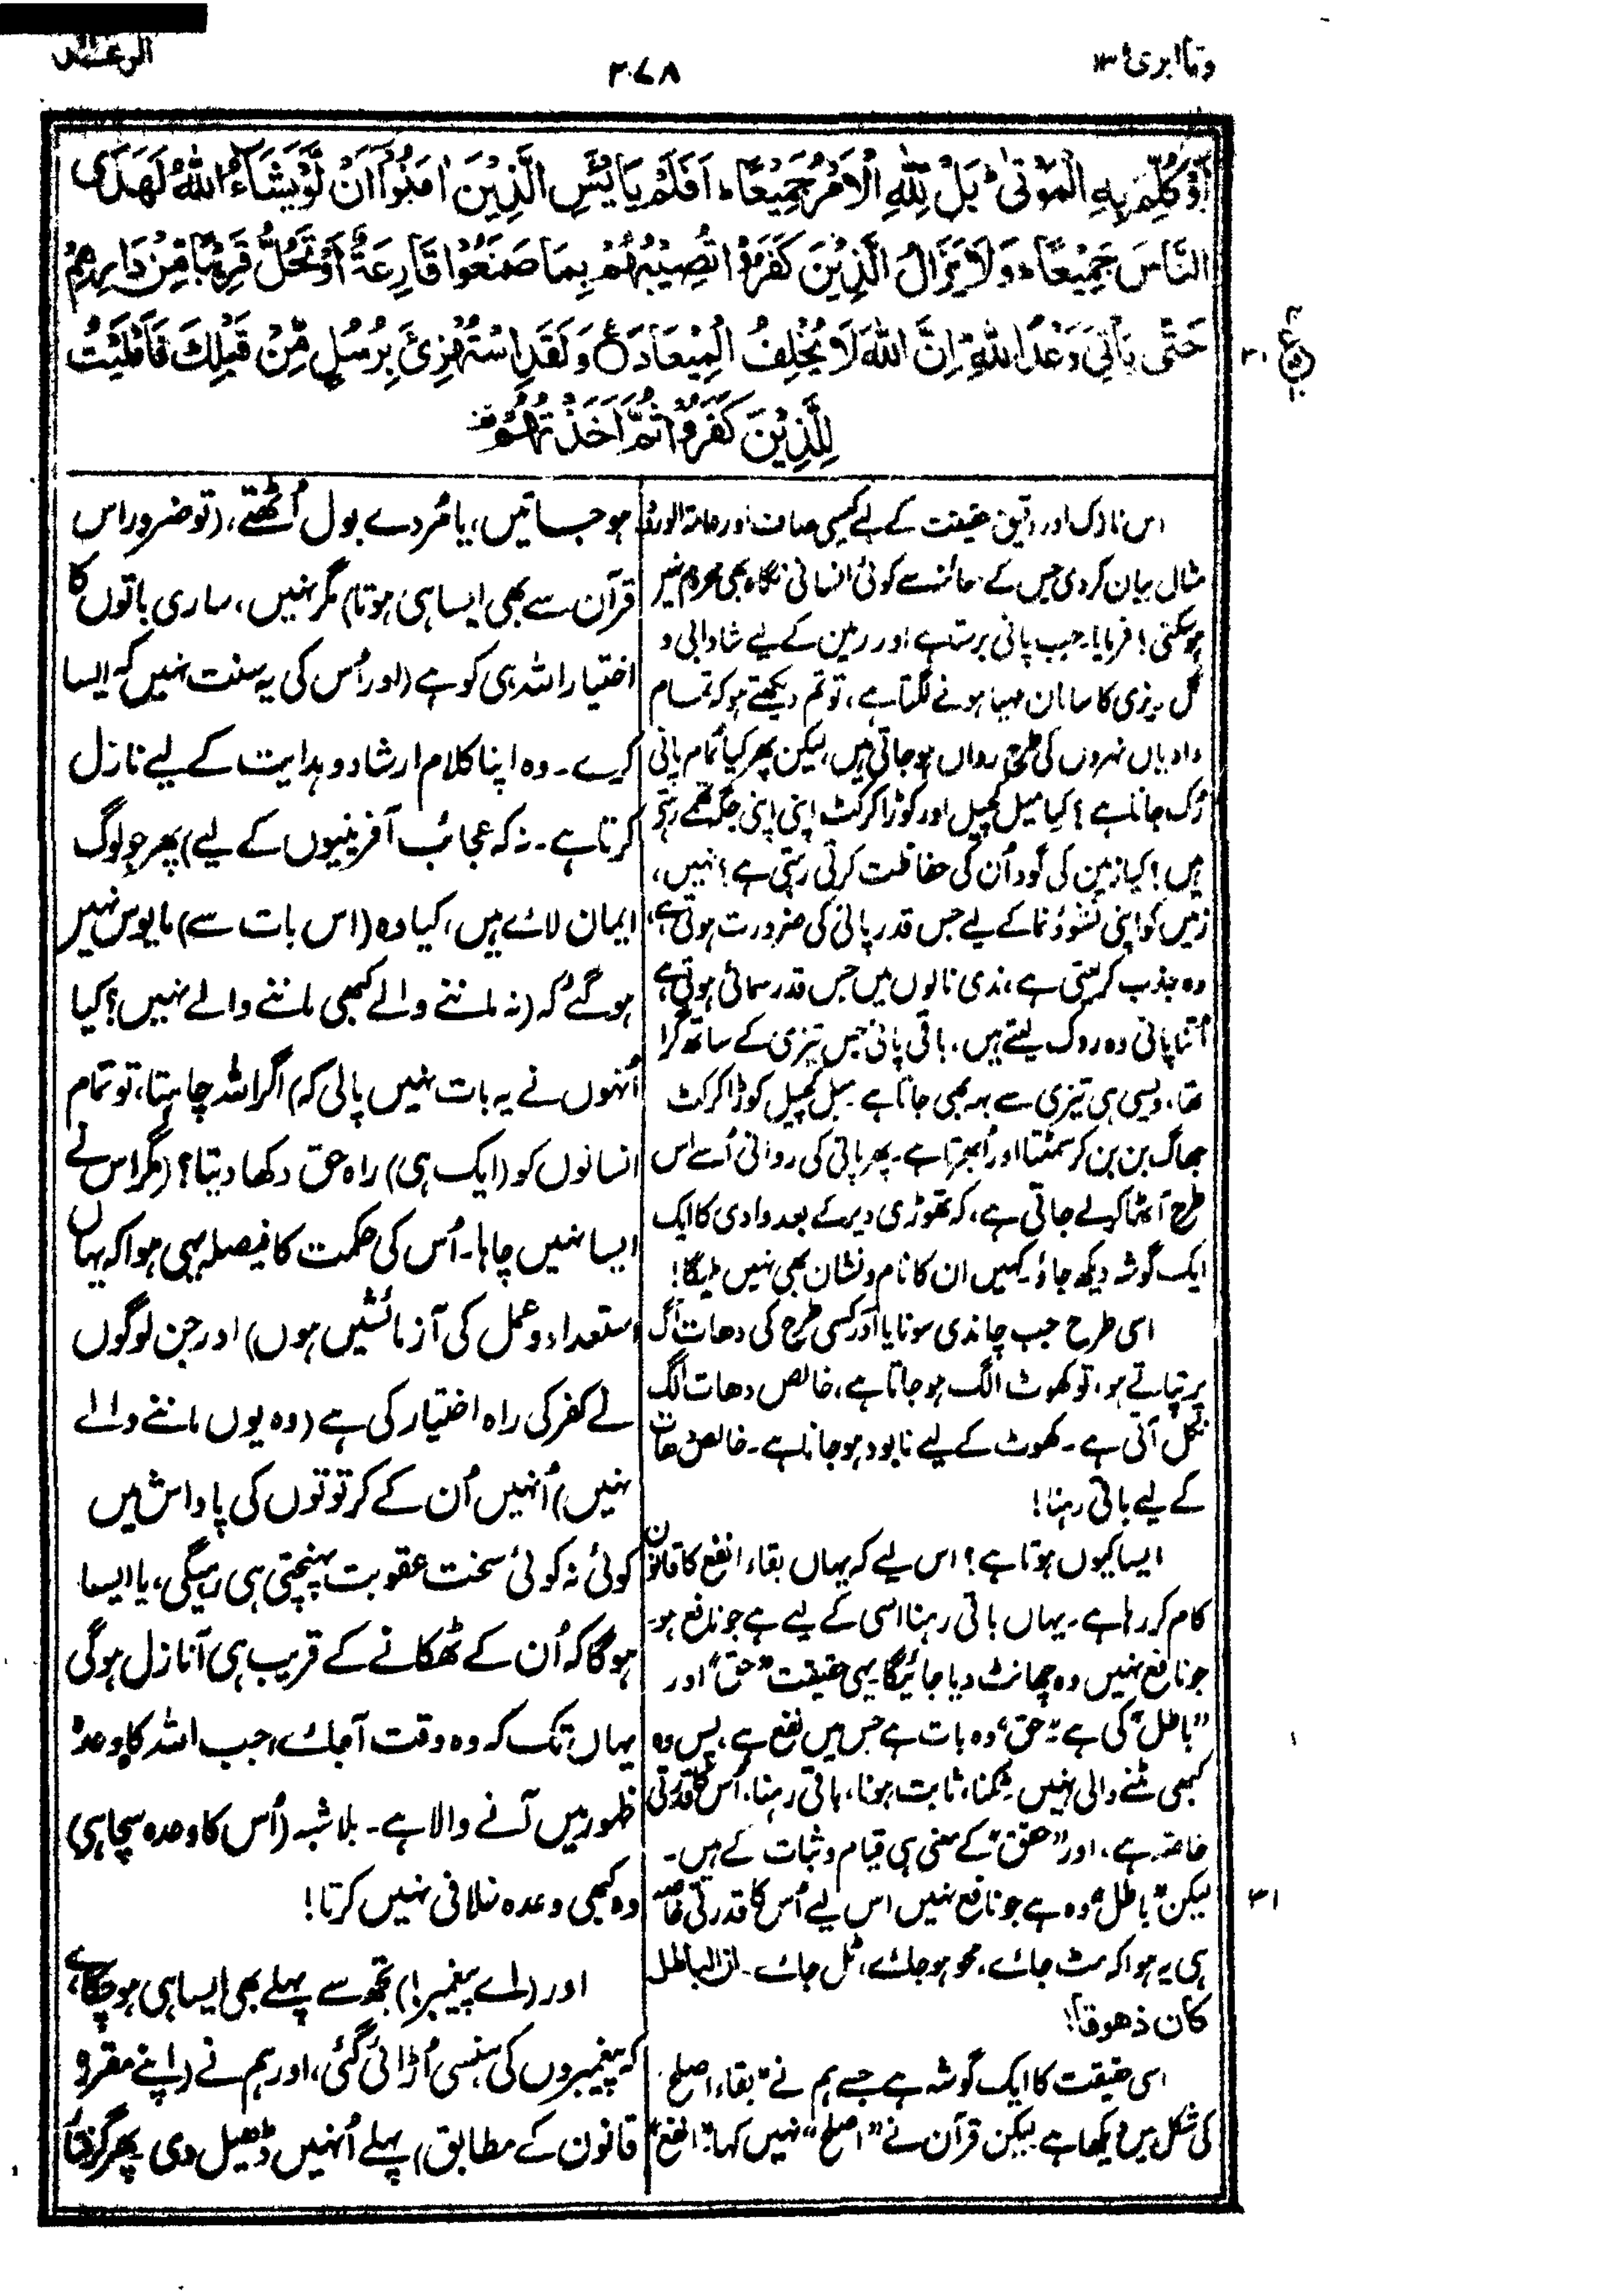 وما ابرئ ۱۳
۲۷۸
الرعد
اَوْ كُلِّمَ بِهِ الْمَوْتٰى ؕ بَلْ لِّلّٰهِ الْاَمْرُ جَمِيْعًا ؕ اَفَلَمْ يَايْـَٔسِ الَّذِيْنَ اٰمَنُوْۤا اَنْ لَّوْ يَشَآءُ اللّٰهُ لَهَدَى
النَّاسَ جَمِيْعًا ؕ وَلَا يَزَالُ الَّذِيْنَ كَفَرُوْا تُصِيْبُهُمْ بِمَا صَنَعُوْا قَارِعَةٌ اَوْ تَحُلُّ قَرِيْبًا مِّنْ دَارِهِمْ
حَتّٰى يَاْتِيَ وَعْدُ اللّٰهِ ؕ اِنَّ اللّٰهَ لَا يُخْلِفُ الْمِيْعَادَ ۝ وَلَقَدِ اسْتُهْزِئَ بِرُسُلٍ مِّنْ قَبْلِكَ فَاَمْلَيْتُ
۳۰
ع
۱۰
لِلَّذِيْنَ كَفَرُوْا ثُمَّ اَخَذْتُهُمْ
اس نازک اور دقیق حقیقت کے لیے کیسی صاف اور عامۃ الورود
مثال بیان کر دی جس کے معائنہ سے کوئی انسانی نگاہ بھی محروم نہیں
ہو سکتی! فرمایا۔ جب پانی برستا ہے اور زمین کے لیے شادابی و
گل ریزی کا سامان مہیا ہونے لگتا ہے، تو تم دیکھتے ہو کہ تمام
وادیاں نہروں کی طرح رواں ہو جاتی ہیں، لیکن پھر کیا تمام پانی
رُک جاتا ہے؟ کیا میل کچیل اور کوڑا کرکٹ اپنی اپنی جگہ تھمے رہتے
ہیں؟ کیا زمین کی گود اُن کی حفاظت کرتی رہتی ہے؟ نہیں،
زمین کو اپنی نشوونما کے لیے جس قدر پانی کی ضرورت ہوتی ہے،
وہ جذب کر لیتی ہے، ندی نالوں میں جس قدر سمائی ہوتی ہے
اُتنا پانی وہ روک لیتے ہیں۔ باقی پانی جس تیزی کے ساتھ گرا
تھا، ویسی ہی تیزی سے بہہ بھی جاتا ہے۔ میل کچیل کوڑا کرکٹ
جھاگ بن بن کر سمٹتا اور اُبھرتا ہے۔ پھر پانی کی روانی اُسے اس
طرح اُٹھا کر لے جاتی ہے، کہ تھوڑی دیر کے بعد وادی کا ایک
ایک گوشہ دیکھ جاؤ۔ کہیں ان کا نام و نشان بھی نہیں ملیگا!
اسی طرح جب چاندی سونا یا اور کسی طرح کی دھات آگ
پر تپاتے ہو، تو کھوٹ الگ ہو جاتا ہے، خالص دھات الگ
نکل آتی ہے۔ کھوٹ کے لیے نابود ہو جانا ہے۔ خالص دھات
کے لیے باقی رہنا!
ایسا کیوں ہوتا ہے؟ اس لیے کہ یہاں بقاء انفع کا قانون
کام کر رہا ہے۔ یہاں باقی رہنا اسی کے لیے ہے جو نافع ہو۔
جو نافع نہیں وہ چھانٹ دیا جائیگا۔ یہی حقیقت "حق" اور
"باطل" کی ہے۔ "حق" وہ بات ہے جس میں نفع ہے، پس وہ
کبھی مٹنے والی نہیں۔ ٹکنا، ثابت ہونا، باقی رہنا، اُس کا قدرتی
خاصہ ہے، اور "حق" کے معنی ہی قیام و ثبات کے ہیں۔
لیکن "باطل" وہ ہے جو نافع نہیں اس لیے اُس کا قدرتی خاصہ
ہی یہ ہوا کہ مٹ جائے، محو ہو جائے، ٹل جائے۔ ان الباطل
کان ذھوقا!
اسی حقیقت کا ایک گوشہ ہے جسے ہم نے "بقاء اصلح"
کی شکل میں دیکھا ہے۔ لیکن قرآن نے "اصلح" نہیں کہا "انفع"
ہو جاتیں، یا مُردے بول اُٹھتے، (تو ضرور اس
قرآن سے بھی ایسا ہی ہوتا) مگر نہیں، ساری باتوں کا
اختیار اللہ ہی کو ہے (اور اُس کی یہ سنت نہیں کہ ایسا
کرے۔ وہ اپنا کلام ارشاد و ہدایت کے لیے نازل
کرتا ہے۔ نہ کہ عجائب آفرینیوں کے لیے) پھر جو لوگ
ایمان لائے ہیں، کیا وہ (اس بات سے) مایوس نہیں
ہو گئے کہ (نہ ماننے والے کبھی ماننے والے نہیں؟ کیا
اُنہوں نے یہ بات نہیں پالی کہ) اگر اللہ چاہتا، تو تمام
انسانوں کو (ایک ہی) راہ حق دکھا دیتا؟ (مگر اس نے
ایسا نہیں چاہا۔ اُس کی حکمت کا فیصلہ یہی ہوا کہ یہاں
استعداد و عمل کی آزمائشیں ہوں) اور جن لوگوں
نے کفر کی راہ اختیار کی ہے (وہ یوں ماننے والے
نہیں) اُنہیں اُن کے کرتوتوں کی پاداش میں
کوئی نہ کوئی سخت عقوبت پہنچتی ہی رہیگی، یا ایسا
ہوگا کہ اُن کے ٹھکانے کے قریب ہی آ نازل ہوگی
یہاں تک کہ وہ وقت آ جائے، جب اللہ کا وعدہ
ظہور میں آنے والا ہے۔ بلاشبہ (اُس کا وعدہ سچا ہے)
وہ کبھی وعدہ خلافی نہیں کرتا!
۳۱
اور (اے پیغمبر!) تجھ سے پہلے بھی ایسا ہی ہو چکا ہے،
کہ پیغمبروں کی ہنسی اُڑائی گئی، اور ہم نے (اپنے مقررہ
قانون کے مطابق) پہلے اُنہیں ڈھیل دی پھر گرفتار